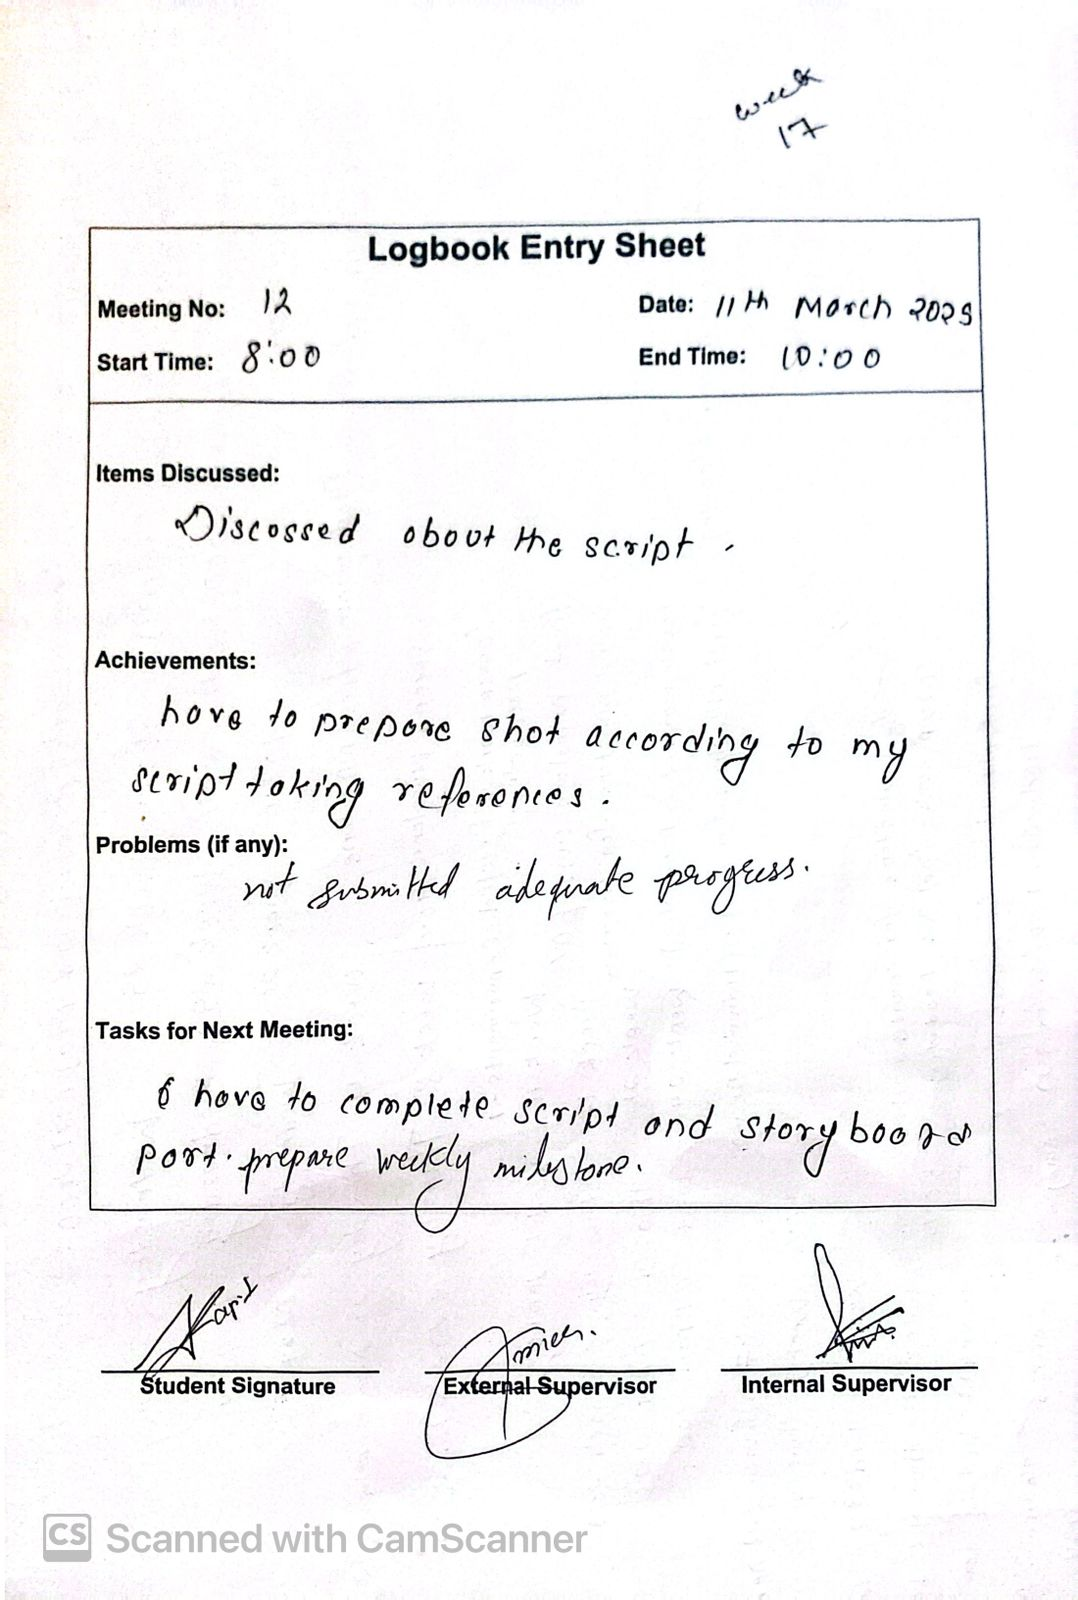 week
17
Logbook Entry Sheet
Meeting No: 12 Date: 11th March 2025
Start Time: 8:00 End Time: 10:00
Items Discussed:
Discossed about the script.
Achievements:
have to prepare shot according to my
script taking references.
Problems (if any):
not submitted adequate progress.
Tasks for Next Meeting:
I have to complete script and story board
part. prepare weekly milestone.
Student Signature External Supervisor Internal Supervisor
CS Scanned with CamScanner